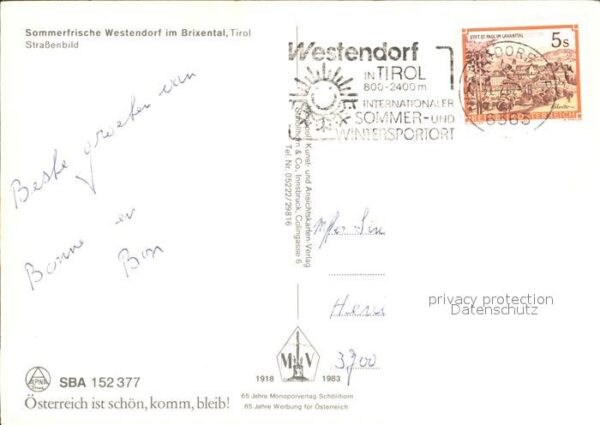 Sommerfrische Westendorf im Brixental, Tirol
Straßenbild
Beste groeten van
Bonne en
Westendorf
IN TIROL
800-2400 m
INTERNATIONALER
SOMMER- UND
WINTERSPORTORT
5s
STIFT ST. PAUL IM LAVANTTAL
REPUBLIK ÖSTERREICH
6363
Kunst- und Ansichtskarten-Verlag
& Co., Innsbruck, Colingasse 6
Tel. Nr. 05222/29816
3700
privacy protection
Oldthing
M V
1918 1983
65 Jahre Monopolverlag Schöllhorn
65 Jahre Werbung für Österreich
SBA 152 377
Österreich ist schön, komm, bleib!